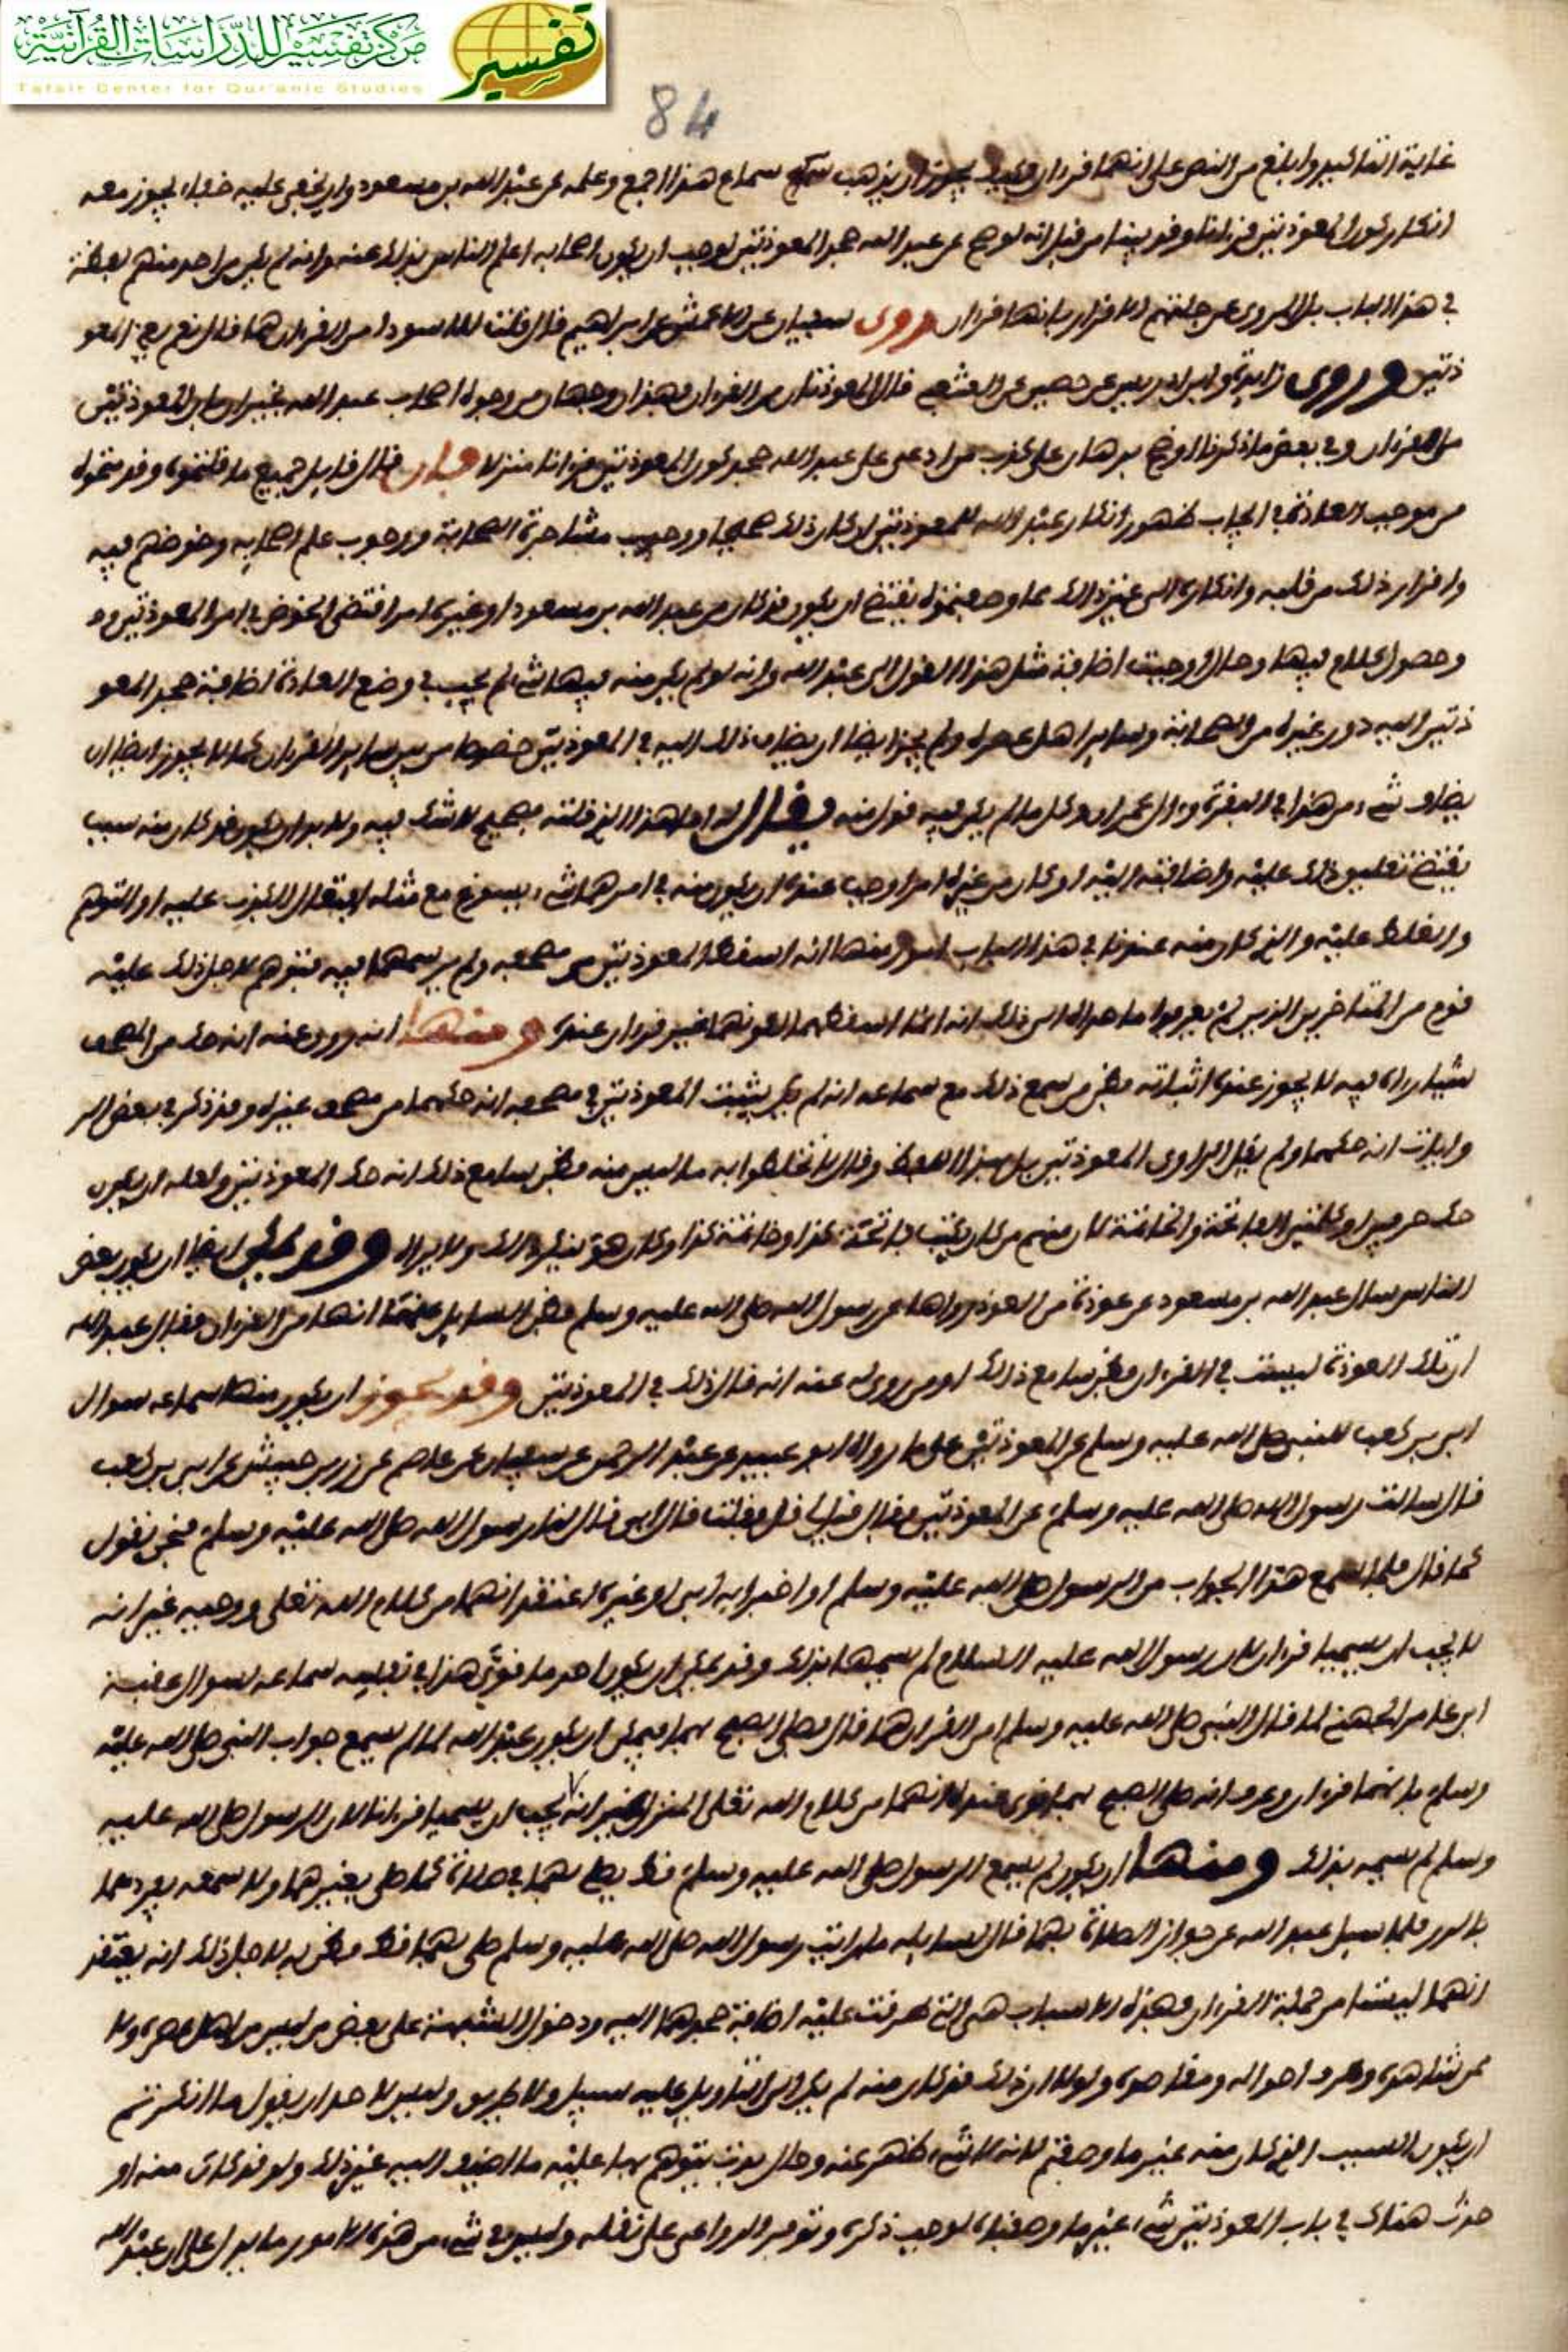 مركز تفسير للدراسات القرآنية
تفسير
Tafsir Center for Qur'anic Studies
84
غاية التاكيد وابلغ من النص على انهما قرءان وكيف يجوز ان يذهب سماع هذا الجمع وعلمه عن عبد الله بن مسعود وان يخفى عليه خفاء يجوز معه
انكار كون المعوذتين قرءانا وقد بينا من قبل انه لو صح عن عبد الله جحد المعوذتين لوجب ان يكون اصحابه اعلم الناس بذلك عنه وانه لم يكن من احد منهم لفظة
في هذا الباب بل المروي عن جلتهم الاقرار بانها قرءان وروى سفيان عن الاعمش عن ابراهيم قال قلت للاسود امن القرءان هما قال نعم يعني المعو
ذتين وروى زايدة وابن ادريس عن حصين عن الشعبي قال المعوذتان من القرءان فهذان وجهان من وجوه اصحاب عبد الله يخبران بان المعوذتين
من القرءان وفي بعض ما ذكرنا اوضح برهان على كذب من ادعى على عبد الله جحد كون المعوذتين قرءانا منزلا فان قال قايل جميع ما قلتموه وقدمتموه
من موجب العادة في ايجاب ظهور انكار عبد الله للمعوذتين لو كان ذلك صحيحا ووجوب مشاجرة الصحابة ووجوب علم اصحابه وخوضهم فيه
واقرار ذلك من قلبه وانكاره الى غير ذلك مما وصفتموه يقتضي ان يكون قد كان من عبد الله بن مسعود او غيره امر اقتضى الخوض في امر المعوذتين
وحصول كلام فيها وحال اوجبت اضافة مثل هذا القول الى عبد الله وانه لو لم يكن منه فيها شيء لم يجب في وضع العادة اضافة جحد المعو
ذتين اليه دون غيره من الصحابة وساير اهل عصره ولم يجز ايضا ان يضاف ذلك اليه في المعوذتين خصوصا من بين ساير القرءان كما لا يجوز ايضا ان
يضاف شيء من هذا في البقرة وءال عمران وكل ما لم يكن فيه قول منه يقال له اما هذا الذي قلته فصحيح لا شك فيه ولا بد ان يكون قد كان منه سبب
يقتضي تعليق ذلك عليه واضافته اليه او كان من غيره امر اوجب عنده ان يكون منه في امرهما شيء يسوغ مع مثله الكذب عليه او التوهم
والغلط عليه والذي كان منه عندنا في هذا الباب امور منها انه اسقط المعوذتين من مصحفه ولم يرسمهما فيه فتوهم لاجل ذلك عليه
قوم من المتاخرين الذين لم يعرفوا ما دعاه الى ذلك انه انما اسقطهما لكونهما غير قرءان عنده ومنها انه روي عنه انه حك من المصحف
شيا رءاه فيه لا يجوز عنده اثباته فظن من سمع ذلك مع سماعه انه لم يكن يثبت المعوذتين في مصحفه انه حكهما من مصحف غيره وقد ذكر في بعض الر
وايات انه حكهما ولم يقل الراوي المعوذتين بل بهذا اللفظ وقال لا تخلطوا به ما ليس منه فظن سامع ذلك انه حك المعوذتين ولعله ان يكون
حك حرفين او كلمتين الفاتحة والخاتمة لان منهم من كان يكتب فاتحة كذا وخاتمة كذا وكان هو ينكر ذلك ولا يراه وقد يمكن ايضا ان يكون بعض
الناس سال عبد الله بن مسعود عن عوذة من العوذ رواها عن رسول الله صلى الله عليه وسلم فظن السايل عنها انها من القرءان فقال عبد الله
ان تلك العوذة ليست في القرءان فظن سامع ذلك او من روي له عنه انه قال ذلك في المعوذتين وقد يجوز ان يكون منها سماعه سوال
ابي بن كعب للنبي صلى الله عليه وسلم عن المعوذتين على ما رواه ابو عبيد عن عبد الرحمن عن سفيان عن عاصم عن زر بن حبيش عن ابي بن كعب
قال سالت رسول الله صلى الله عليه وسلم عن المعوذتين فقال قيل لي قل فقلت قال ابي قال لنا رسول الله صلى الله عليه وسلم فنحن نقول
كما قال فلما سمع هذا الجواب من الرسول صلى الله عليه وسلم او اخبر به ابي او غيره اعتقد انهما من كلام الله تعلى ووحيه غير انه
لا يجب ان يسميا قرءانا لان رسول الله عليه السلام لم يسمها بذلك وقد يمكن ان يكون احد ما قوى هذا في نفسه سماعه لسوال عقبة
ابن عامر الجهني لما قال للنبي صلى الله عليه وسلم امن القرءان هما قال فصلى الصبح بهما فيمكن ان يكون عبد الله لما لم يسمع جواب النبي صلى الله عليه
وسلم بانهما قرءان وعرف انه صلى الصبح بهما قوى عنده انهما من كلام الله تعلى المنزل غير انه لا يجب ان يسميا قرءانا لان الرسول صلى الله عليه
وسلم لم يسمه بذلك ومنها ان يكون لم يسمع الرسول صلى الله عليه وسلم قط يصلي بهما في صلاة كما صلى بغيرهما ولا سمعه يفردهما
بالدرس فلما سيل عبد الله عن جواز الصلاة بهما قال لسايله ما رايت رسول الله صلى الله عليه وسلم صلى بهما قط فظن به لاجل ذلك انه يعتقد
انهما ليستا من جملة القرءان فهذه الاسباب هي التي طرقت عليه اضافة جحدهما اليه ودخول الشبهة على بعض من ليس من اهل عصره ولا
ممن شاهده وعرف احواله ومقاصده ولولا ان ذلك قد كان منه لم يكن الى التاويل عليه سبيل ولا طريق وليس لاحد ان يقول ما انكرتم
ان يكون السبب الذي كان منه غير ما وصفتم لانه لا شيء ظهر عنه وحال عرفت يتوهم بها عليه ما اضيف اليه غير ذلك ولو قد كان منه او
حدث هناك في باب المعوذتين شيء غير ما وصفناه لوجب ذكره وتوفر الدواعي على نقله وليس في شيء من هذه الامور ما يدل على ان عبد الله